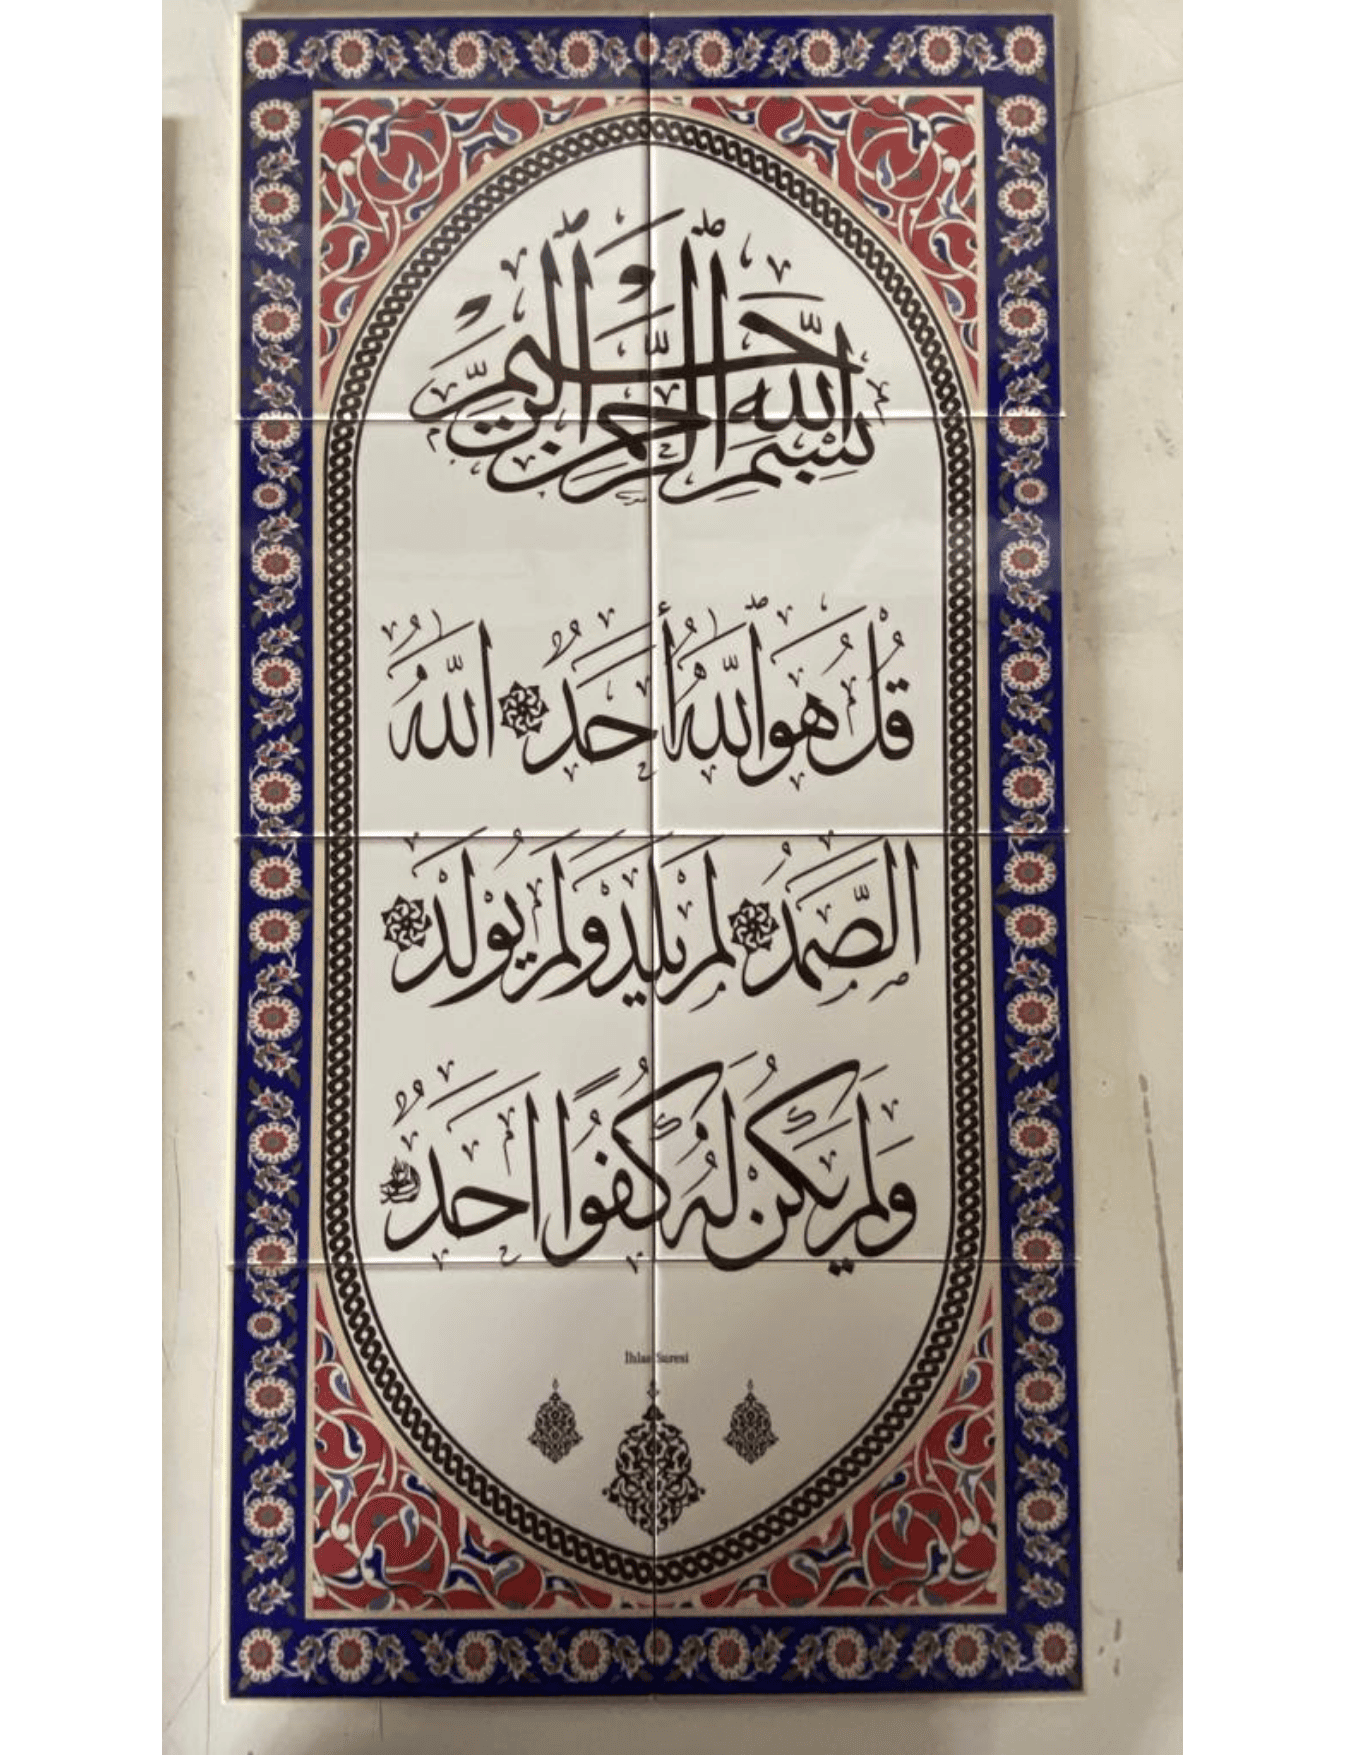 بِسْمِ اللّٰهِ الرَّحْمٰنِ الرَّحِيمِ
قُلْ هُوَ اللّٰهُ أَحَدٌ ۞ اَللّٰهُ
الصَّمَدُ ۞ لَمْ يَلِدْ وَلَمْ يُولَدْ ۞
وَلَمْ يَكُنْ لَهُ كُفُوًا اَحَدٌ
İhlas Suresi